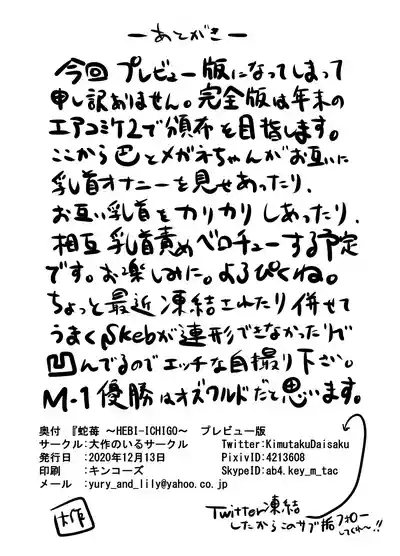 ーあとがきー
今回 プレビュー版になってしまって
申し訳ありません。完全版は年末の
エアコミケ2で頒布を目指します。
ここから巴とメガネちゃんがお互いに
乳首オナニーを見せあったり、
お互い乳首をカリカリしあったり、
相互乳首責めベロチューする予定
です。お楽しみに。よろぴくね。
ちょっと最近凍結されたり併せて
うまくSkebが連形できなかったりで
凹んでるのでエッチな自撮り下さい。
M-1優勝はオズワルドだと思います。
奥付 『蛇苺 ～HEBI-ICHIGO～ プレビュー版
サークル:大作のいるサークル Twitter:KimutakuDaisaku
発行日 :2020年12月13日 PixivID:4213608
印刷 :キンコーズ SkypeID:ab4.key_m_tac
メール :yury_and_lily@yahoo.co.jp
大作
Twitter凍結
したからこのサブ垢フォロー
してくれ〜!!